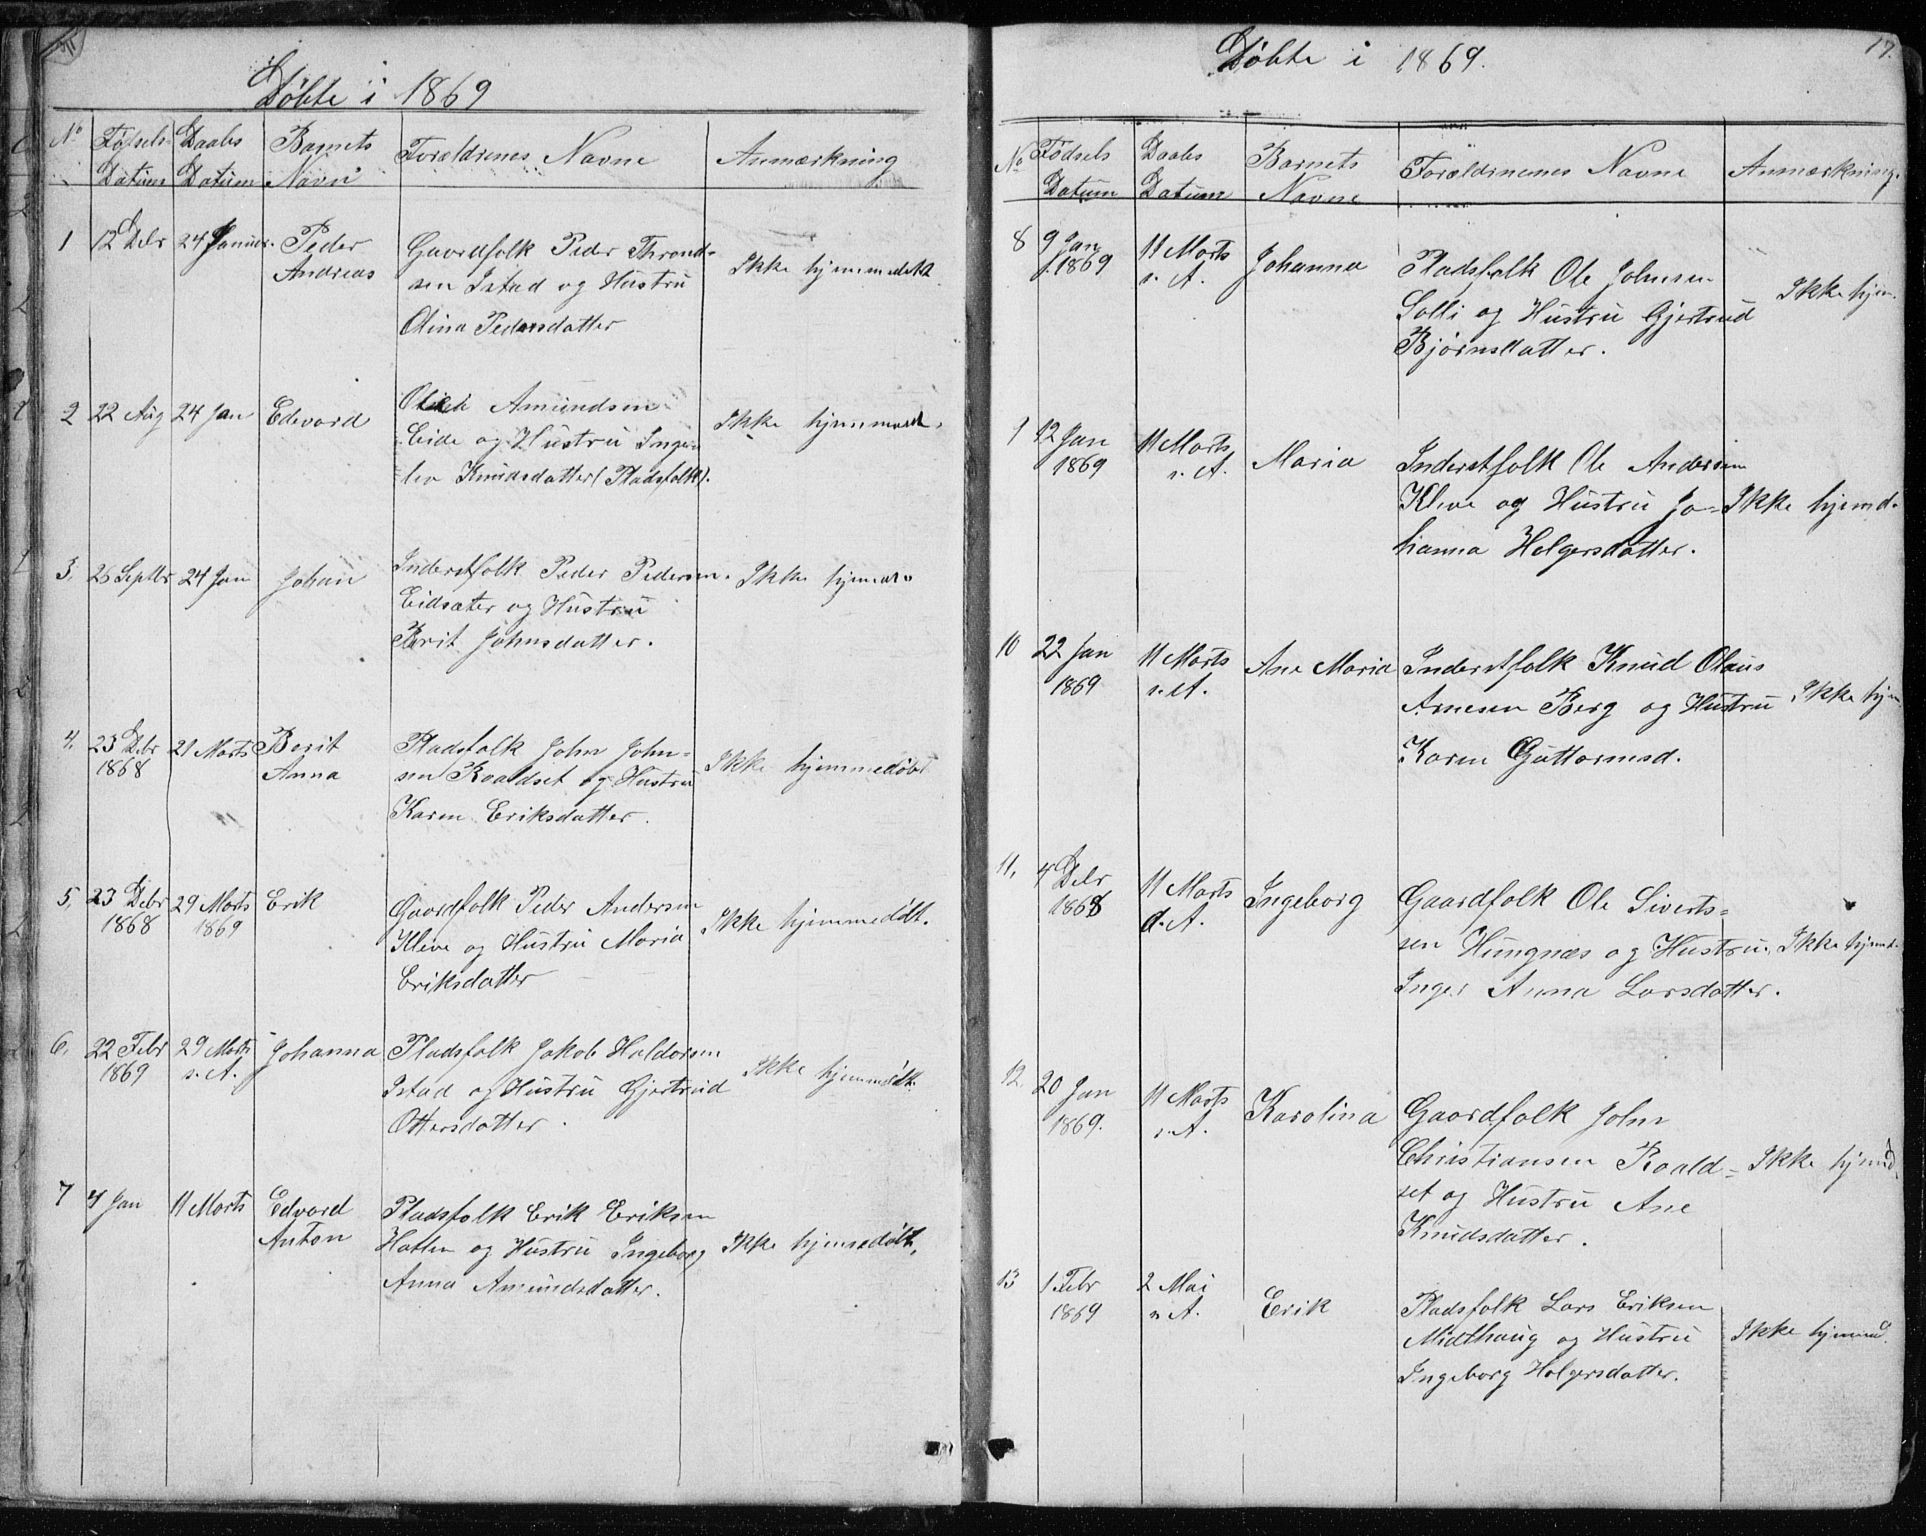 Døbte i 1869
No Fødsels Datum Daabs Datum Barnets Navn Forældrenes Navne Anmærkning
1 12 Debr 24 Januar. Peder Gaardfolk Peder Thrond-
Andreas sen Istad og Hustru Ikke hjemmedøbt
Olina Pedersdatter
2 22 Aug 24 Jan Edevard Amundsen Ikke hjemmedt.
Eide og Hustru Inge-
lev Knudsdatter (Pladsfolk).
3. 26 Septbr 24 Jan Johan Inderstfolk Peder Pedersen. Ikke hjemdt.
Eidsæter og Hustru
Berit Johnsdatter.
4. 23 Debr 21 Marts Berit Pladsfolk John John-
1868 Anna sen Roaldset og Hustru Ikke hjemmedøbt
Karen Eriksdatter.
5. 23 Debr 29 Marts Erik Gaardfolk Peder Andersen
1868 1869 Kleve og Hustru Maria Ikke hjemmedøbt.
Eriksdatter
6. 22 Febr 29 Marts Johanna Pladsfolk Jakob Haldorsen
1869 s. A. Istad og Hustru Gjertrud Ikke hjemmedøbt.
Ottersdatter.
7 4 Jan 11 Marts Edvard Pladsfolk Erik Eriksen
Anton Hatlen og Hustru Ingeborg Ikke hjemmedøbt.
Anna Amundsdatter.
Døbte i 1869.
17.
No Fødsels Datum Daabs Datum Barnets Navne Forældrenes Navne Anmærkning.
8 9 Jan 11 Marts Johanna Pladsfolk Ole Johnsen
1869 s. A. Solli og Hustru Gjertrud Ikke hjem.
Bjørnsdatter.
12 Jan 11 Marts Maria Inderstfolk Ole Andersen
1869 s. A. Kleve og Hustru Jo- Ikke hjemd.
hanna Holgersdatter.
10 22 Jan 11 Marts Ane Maria Inderstfolk Knud Olaus
1869 s. A. Arnesen Berg og Hustru Ikke hjem
Karen Guttormsd.
11. 4 Debr 11 Marts Ingeborg Gaardfolk Ole Siverts-
1868 d. A. sen Hungnæs og Hustru Ikke hjemd.
Inger Anna Larsdatter.
12. 20 Jan 11 Marts Karolina Gaardfolk John
1869. s. A. Christiansen Roald- Ikke hjemd.
set og Hustru Ane
Knudsdatter.
13 1 Febr 2 Mai Erik Pladsfolk Lars Eriksen
1869 s. A. Midthaug og Hustru Ikke hjemmd.
Ingeborg Holgersdatter.